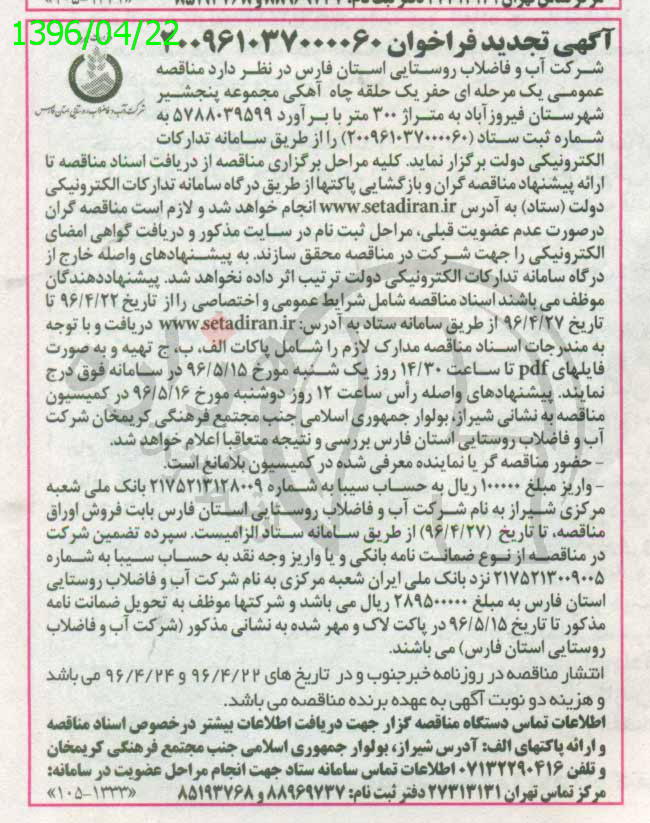 1396/04/22
آگهی تجدید فراخوان ۲۰۰۹۶۱۰۳۷۰۰۰۰۶۰
شرکت آب و فاضلاب روستایی استان فارس در نظر دارد مناقصه
عمومی یک مرحله ای حفر یک حلقه چاه آهکی مجموعه پنجشیر
شهرستان فیروزآباد به متراژ ۳۰۰ متر با برآورد ۵۷۸۸۰۳۹۵۹۹ به
شماره ثبت ستاد (۲۰۰۹۶۱۰۳۷۰۰۰۰۶۰) را از طریق سامانه تدارکات
الکترونیکی دولت برگزار نماید. کلیه مراحل برگزاری مناقصه از دریافت اسناد مناقصه تا
ارائه پیشنهاد مناقصه گران و بازگشایی پاکتها از طریق درگاه سامانه تدارکات الکترونیکی
دولت (ستاد) به آدرس www.setadiran.ir انجام خواهد شد و لازم است مناقصه گران
درصورت عدم عضویت قبلی، مراحل ثبت نام در سایت مذکور و دریافت گواهی امضای
الکترونیکی را جهت شرکت در مناقصه محقق سازند. به پیشنهادهای واصله خارج از
درگاه سامانه تدارکات الکترونیکی دولت ترتیب اثر داده نخواهد شد. پیشنهاددهندگان
موظف می باشند اسناد مناقصه شامل شرایط عمومی و اختصاصی را از تاریخ ۹۶/۴/۲۲ تا
تاریخ ۹۶/۴/۲۷ از طریق سامانه ستاد به آدرس: www.setadiran.ir دریافت و با توجه
به مندرجات اسناد مناقصه مدارک لازم را شامل پاکات الف، ب، ج تهیه و به صورت
فایلهای pdf تا ساعت ۱۴/۳۰ روز یک شنبه مورخ ۹۶/۵/۱۵ در سامانه فوق درج
نمایند. پیشنهادهای واصله رأس ساعت ۱۲ روز دوشنبه مورخ ۹۶/۵/۱۶ در کمیسیون
مناقصه به نشانی شیراز، بولوار جمهوری اسلامی جنب مجتمع فرهنگی کریمخان شرکت
آب و فاضلاب روستایی استان فارس بررسی و نتیجه متعاقبا اعلام خواهد شد.
- حضور مناقصه گر یا نماینده معرفی شده در کمیسیون بلامانع است.
- واریز مبلغ ۱۰۰۰۰۰ ریال به حساب سیبا به شماره ۲۱۷۵۲۱۳۱۲۸۰۰۹ بانک ملی شعبه
مرکزی شیراز به نام شرکت آب و فاضلاب روستایی استان فارس بابت فروش اوراق
مناقصه، تا تاریخ (۹۶/۴/۲۷) از طریق سامانه ستاد الزامیست. سپرده تضمین شرکت
در مناقصه از نوع ضمانت نامه بانکی و یا واریز وجه نقد به حساب سیبا به شماره
۲۱۷۵۲۱۳۰۰۹۰۰۵ نزد بانک ملی ایران شعبه مرکزی به نام شرکت آب و فاضلاب روستایی
استان فارس به مبلغ ۲۸۹۵۰۰۰۰۰ ریال می باشد و شرکتها موظف به تحویل ضمانت نامه
مذکور تا تاریخ ۹۶/۵/۱۵ در پاکت لاک و مهر شده به نشانی مذکور (شرکت آب و فاضلاب
روستایی استان فارس) می باشند.
انتشار مناقصه در روزنامه خبرجنوب و در تاریخ های ۹۶/۴/۲۲ و ۹۶/۴/۲۴ می باشد
و هزینه دو نوبت آگهی به عهده برنده مناقصه می باشد.
اطلاعات تماس دستگاه مناقصه گزار جهت دریافت اطلاعات بیشتر درخصوص اسناد مناقصه
و ارائه پاکتهای الف: آدرس شیراز، بولوار جمهوری اسلامی جنب مجتمع فرهنگی کریمخان
و تلفن ۰۷۱۳۲۲۹۰۴۱۶ اطلاعات تماس سامانه ستاد جهت انجام مراحل عضویت در سامانه:
مرکز تماس تهران ۲۷۳۱۳۱۳۱ دفتر ثبت نام: ۸۸۹۶۹۷۳۷ و ۸۵۱۹۳۷۶۸ «۱۰۵-۱۳۳۳»